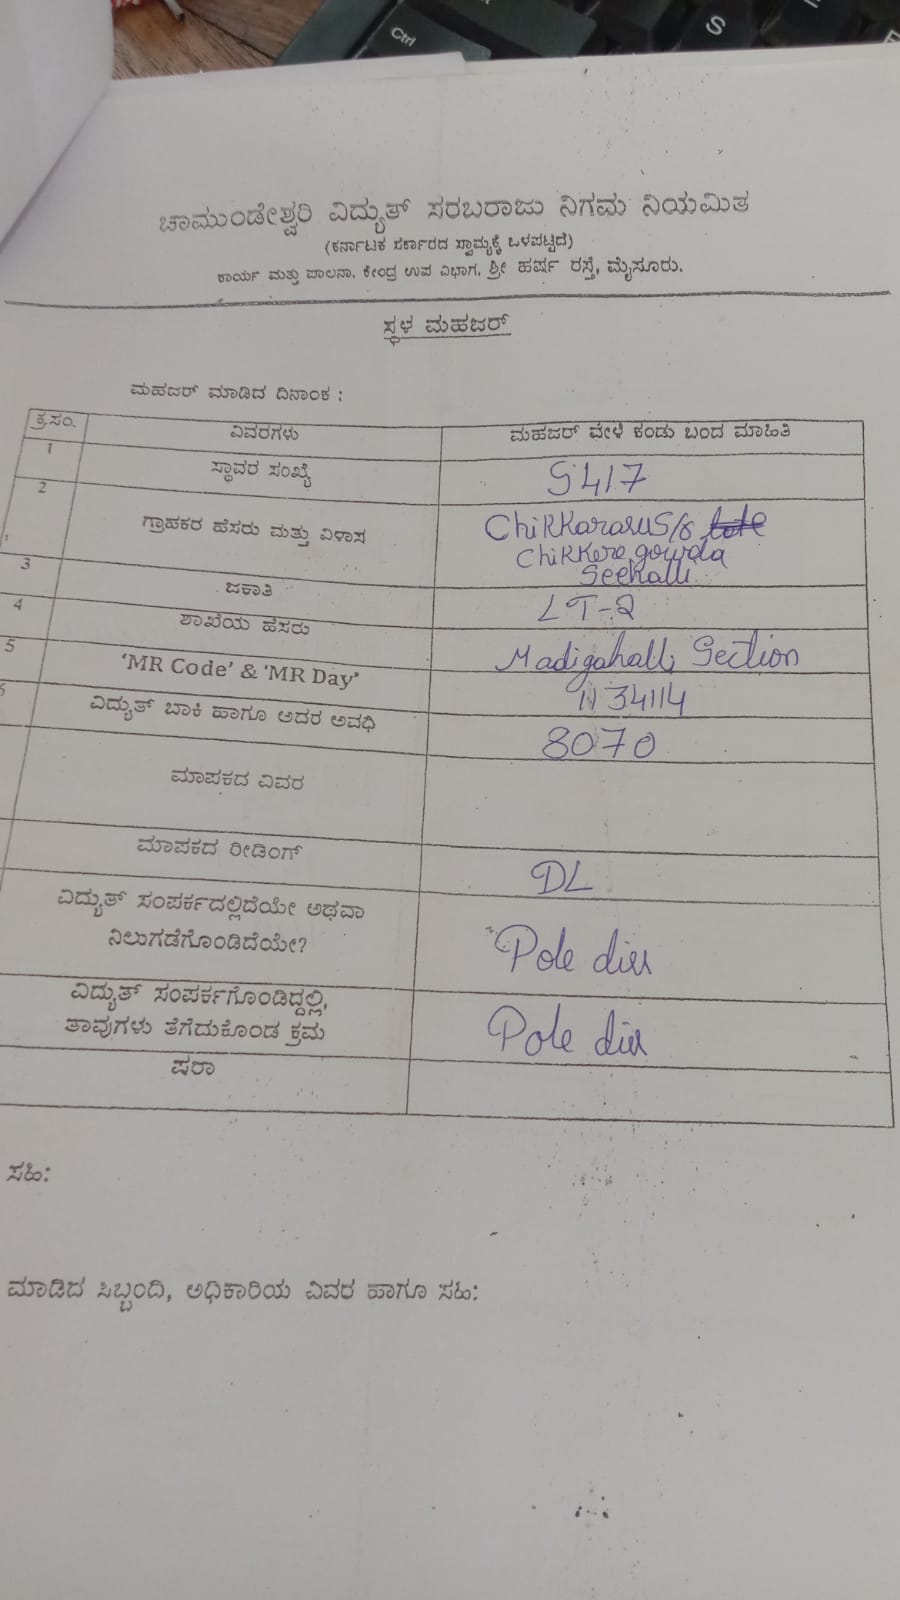 Ctrl
S
ಚಾಮುಂಡೇಶ್ವರಿ ವಿದ್ಯುತ್ ಸರಬರಾಜು ನಿಗಮ ನಿಯಮಿತ
(ಕರ್ನಾಟಕ ಸರ್ಕಾರದ ಸ್ವಾಮ್ಯಕ್ಕೆ ಒಳಪಟ್ಟಿದೆ)
ಕಾರ್ಯ ಮತ್ತು ಪಾಲನಾ, ಕೇಂದ್ರ ಉಪ ವಿಭಾಗ, ಶ್ರೀ ಹರ್ಷ ರಸ್ತೆ, ಮೈಸೂರು.
ಸ್ಥಳ ಮಹಜರ್
ಮಹಜರ್ ಮಾಡಿದ ದಿನಾಂಕ :
ಕ್ರ.ಸಂ. ವಿವರಗಳು ಮಹಜರ್ ವೇಳೆ ಕಂಡು ಬಂದ ಮಾಹಿತಿ
1 ಸ್ಥಾವರ ಸಂಖ್ಯೆ S417
2 ಗ್ರಾಹಕರ ಹೆಸರು ಮತ್ತು ವಿಳಾಸ Chikkarasu S/o late
Chikkere gowda
Seehalli
3 ಜಕಾತಿ LT-2
4 ಶಾಖೆಯ ಹೆಸರು Madigahalli Section
5 'MR Code' & 'MR Day' 1134114
6 ವಿದ್ಯುತ್ ಬಾಕಿ ಹಾಗೂ ಅದರ ಅವಧಿ 8070
ಮಾಪಕದ ವಿವರ
ಮಾಪಕದ ರೀಡಿಂಗ್ DL
ವಿದ್ಯುತ್ ಸಂಪರ್ಕದಲ್ಲಿದೆಯೇ ಅಥವಾ
ನಿಲುಗಡೆಗೊಂಡಿದೆಯೇ? Pole dis
ವಿದ್ಯುತ್ ಸಂಪರ್ಕಗೊಂಡಿದ್ದಲ್ಲಿ,
ತಾವುಗಳು ತೆಗೆದುಕೊಂಡ ಕ್ರಮ Pole dis
ಷರಾ
ಸಹಿ:
ಮಾಡಿದ ಸಿಬ್ಬಂದಿ, ಅಧಿಕಾರಿಯ ವಿವರ ಹಾಗೂ ಸಹಿ: